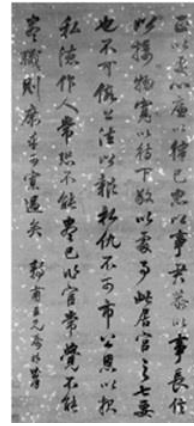 正以處心廉以律己忠以事君恭以事長信
以接物寬以待下敬以處事此居官之七要
也不可假公法以報私仇不可市公恩以報
私德作人常恐不能盡己作官常覺不能
盡職則庶乎可寡過矣